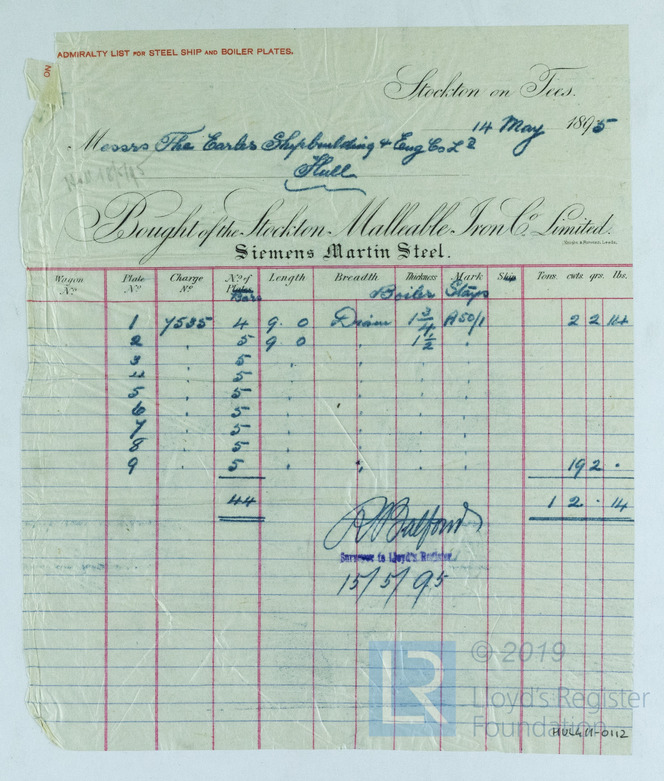 ADMIRALTY LIST FOR STEEL SHIP AND BOILER PLATES.
NO
Stockton on Tees.
14 May 1895
Messrs The Earles Shipbuilding & Eng Co Ld
Hull
Bought of the Stockton Malleable Iron Co. Limited.
Siemens Martin Steel.
Wagon No. Plate No. Charge No. No. of Plates Length Breadth Thickness Mark Ship Tons. cwts. qrs. lbs.
Bars Boiler Stays
1 7535 4 9. 0 Diam 1 3/4 A50/1 2 2 14
2 " 5 9 0 " 1 1/2 "
3 " 5 " " " "
4 " 5 " " " "
5 " 5 " " " "
6 " 5 " " " "
7 " 5 " " " "
8 " 5 " " " "
9 " 5 " " " " 19 2 .
44 1 2 . 14
Surveyor to Lloyd's Register
15/5/95
© 2019
LR
Lloyd's Register
Foundation
HUL411-0112